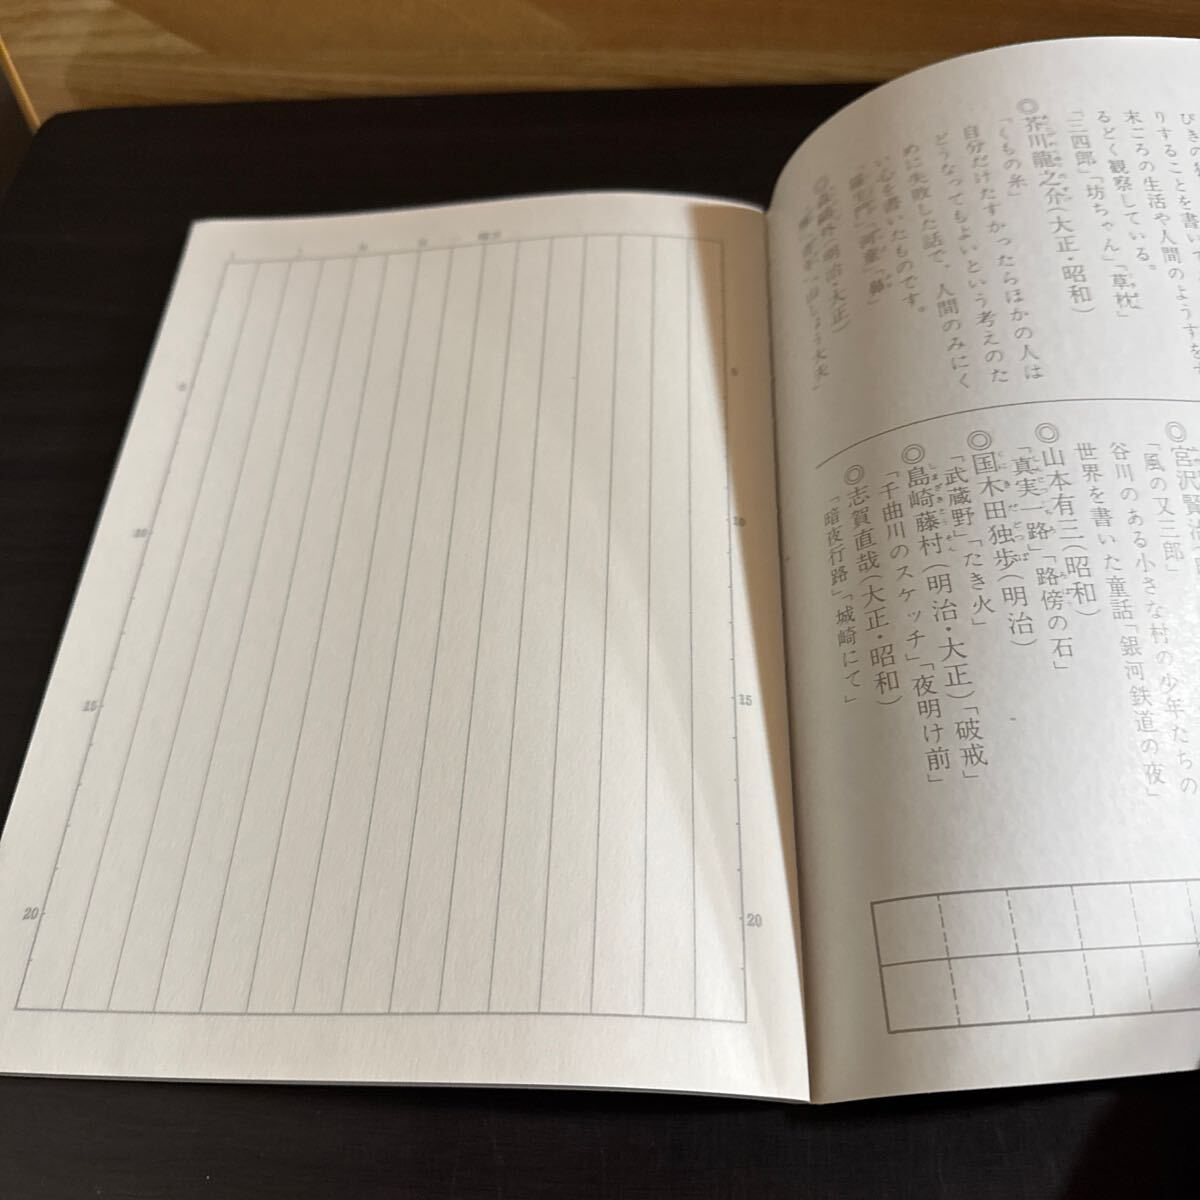 りすることを書いて
末ころの生活や人間のようすをす
るどく観察している。
「三四郎」「坊ちゃん」「草枕」
◎芥川龍之介(大正・昭和)
「くもの糸」
自分だけたすかったらほかの人は
どうなってもよいという考えのた
めに失敗した話で、人間のみにく
い心を書いたものです。
「羅生門」「河童」「鼻」
◎森鷗外(明治・大正)
◎宮沢賢治
「風の又三郎」
谷川のある小さな村の少年たちの
世界を書いた童話「銀河鉄道の夜」
◎山本有三(昭和)
「真実一路」「路傍の石」
◎国木田独歩(明治)
「武蔵野」「たき火」
◎島崎藤村(明治・大正)「破戒」
「千曲川のスケッチ」「夜明け前」
◎志賀直哉(大正・昭和)
「暗夜行路」「城崎にて」
5
10
15
20
5
10
15
20